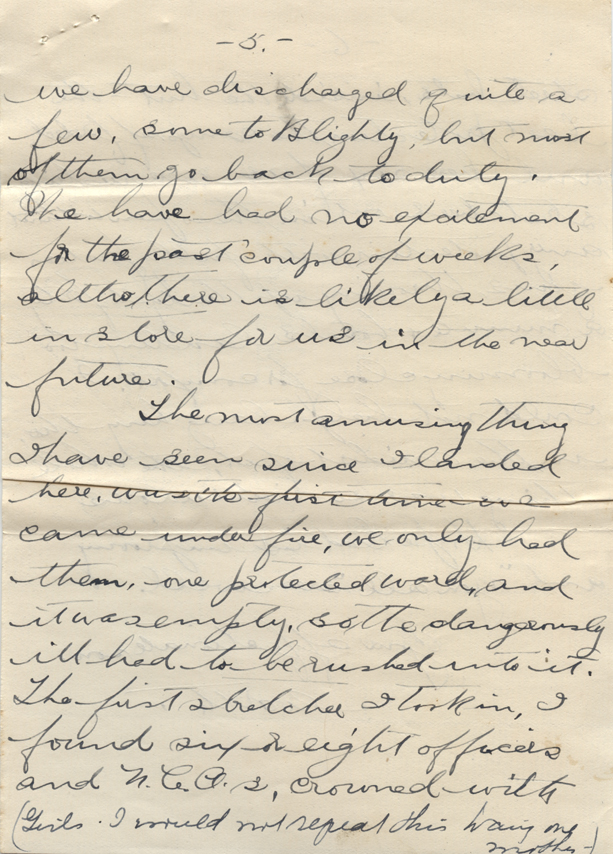 -5.-
we have discharged quite a
few, some to Blighty, but most
of them go back to duty.
We have had no excitement
for the past couple of weeks,
altho there is likely a little
in store for us in the near
future.
The most amusing thing
I have seen since I landed
here, was the first time we
came under fire, we only had
them, one protected ward, and
it was empty, so the dangerously
ill had to be rushed into it.
The first stretcher I took in, I
found six or eight officers
and N.C.O.s, crowned with
(Girls. I would not repeat this to any one
mother-)